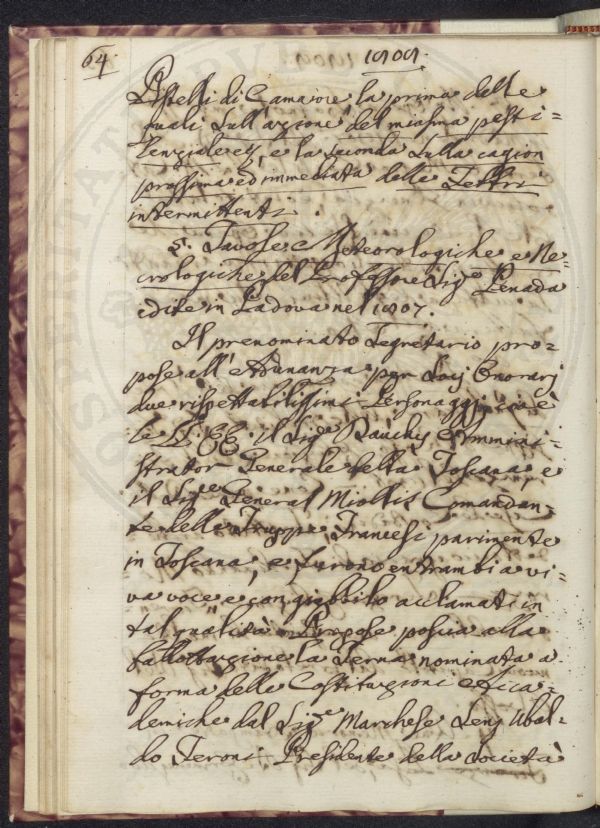 64
1808.
Pistelli di Camaiore la prima delle
quali sull'azione del miasma pesti=
lenziale ec, e la seconda sulla cagion
prossima ed immediata delle Febbri
intermittenti.
5. Tavole Meteorologiche e Ne=
crologiche del Professore Sig.e Penada
edite in Padova nel 1807.
Il prenominato Segretario pro=
pose all'Adunanza per Socj Onorarj
due rispettabilissimi Personaggi, cioè
le LL. EE. il Sig.e Dauchy Ammini=
strator Generale della Toscana e
il Sig.e General Miollis Comandan=
te delle Truppe Francesi parimente
in Toscana, e furono entrambi a vi=
va voce e con giubbilo acclamati in
tal qualità. Propose poscia alla
ballottazione la Terna nominata a
forma delle Costituzioni Acca=
demiche dal Sig.e Marchese Senj Ubal=
do Feroni Presidente della Società